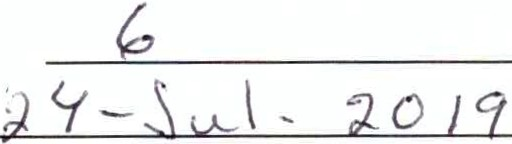 6
24-Jul. 2019